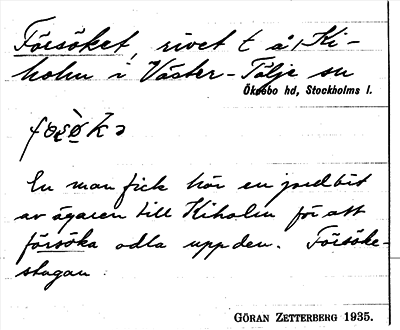 Försöket, rivet t å Ki-
holm i Väster-Tälje sn
Öknebo hd, Stockholms l.
En man fick här en jordbit
av ägaren till Kiholm för att
försöka odla upp den. Försöke-
stugan
GÖRAN ZETTERBERG 1935.